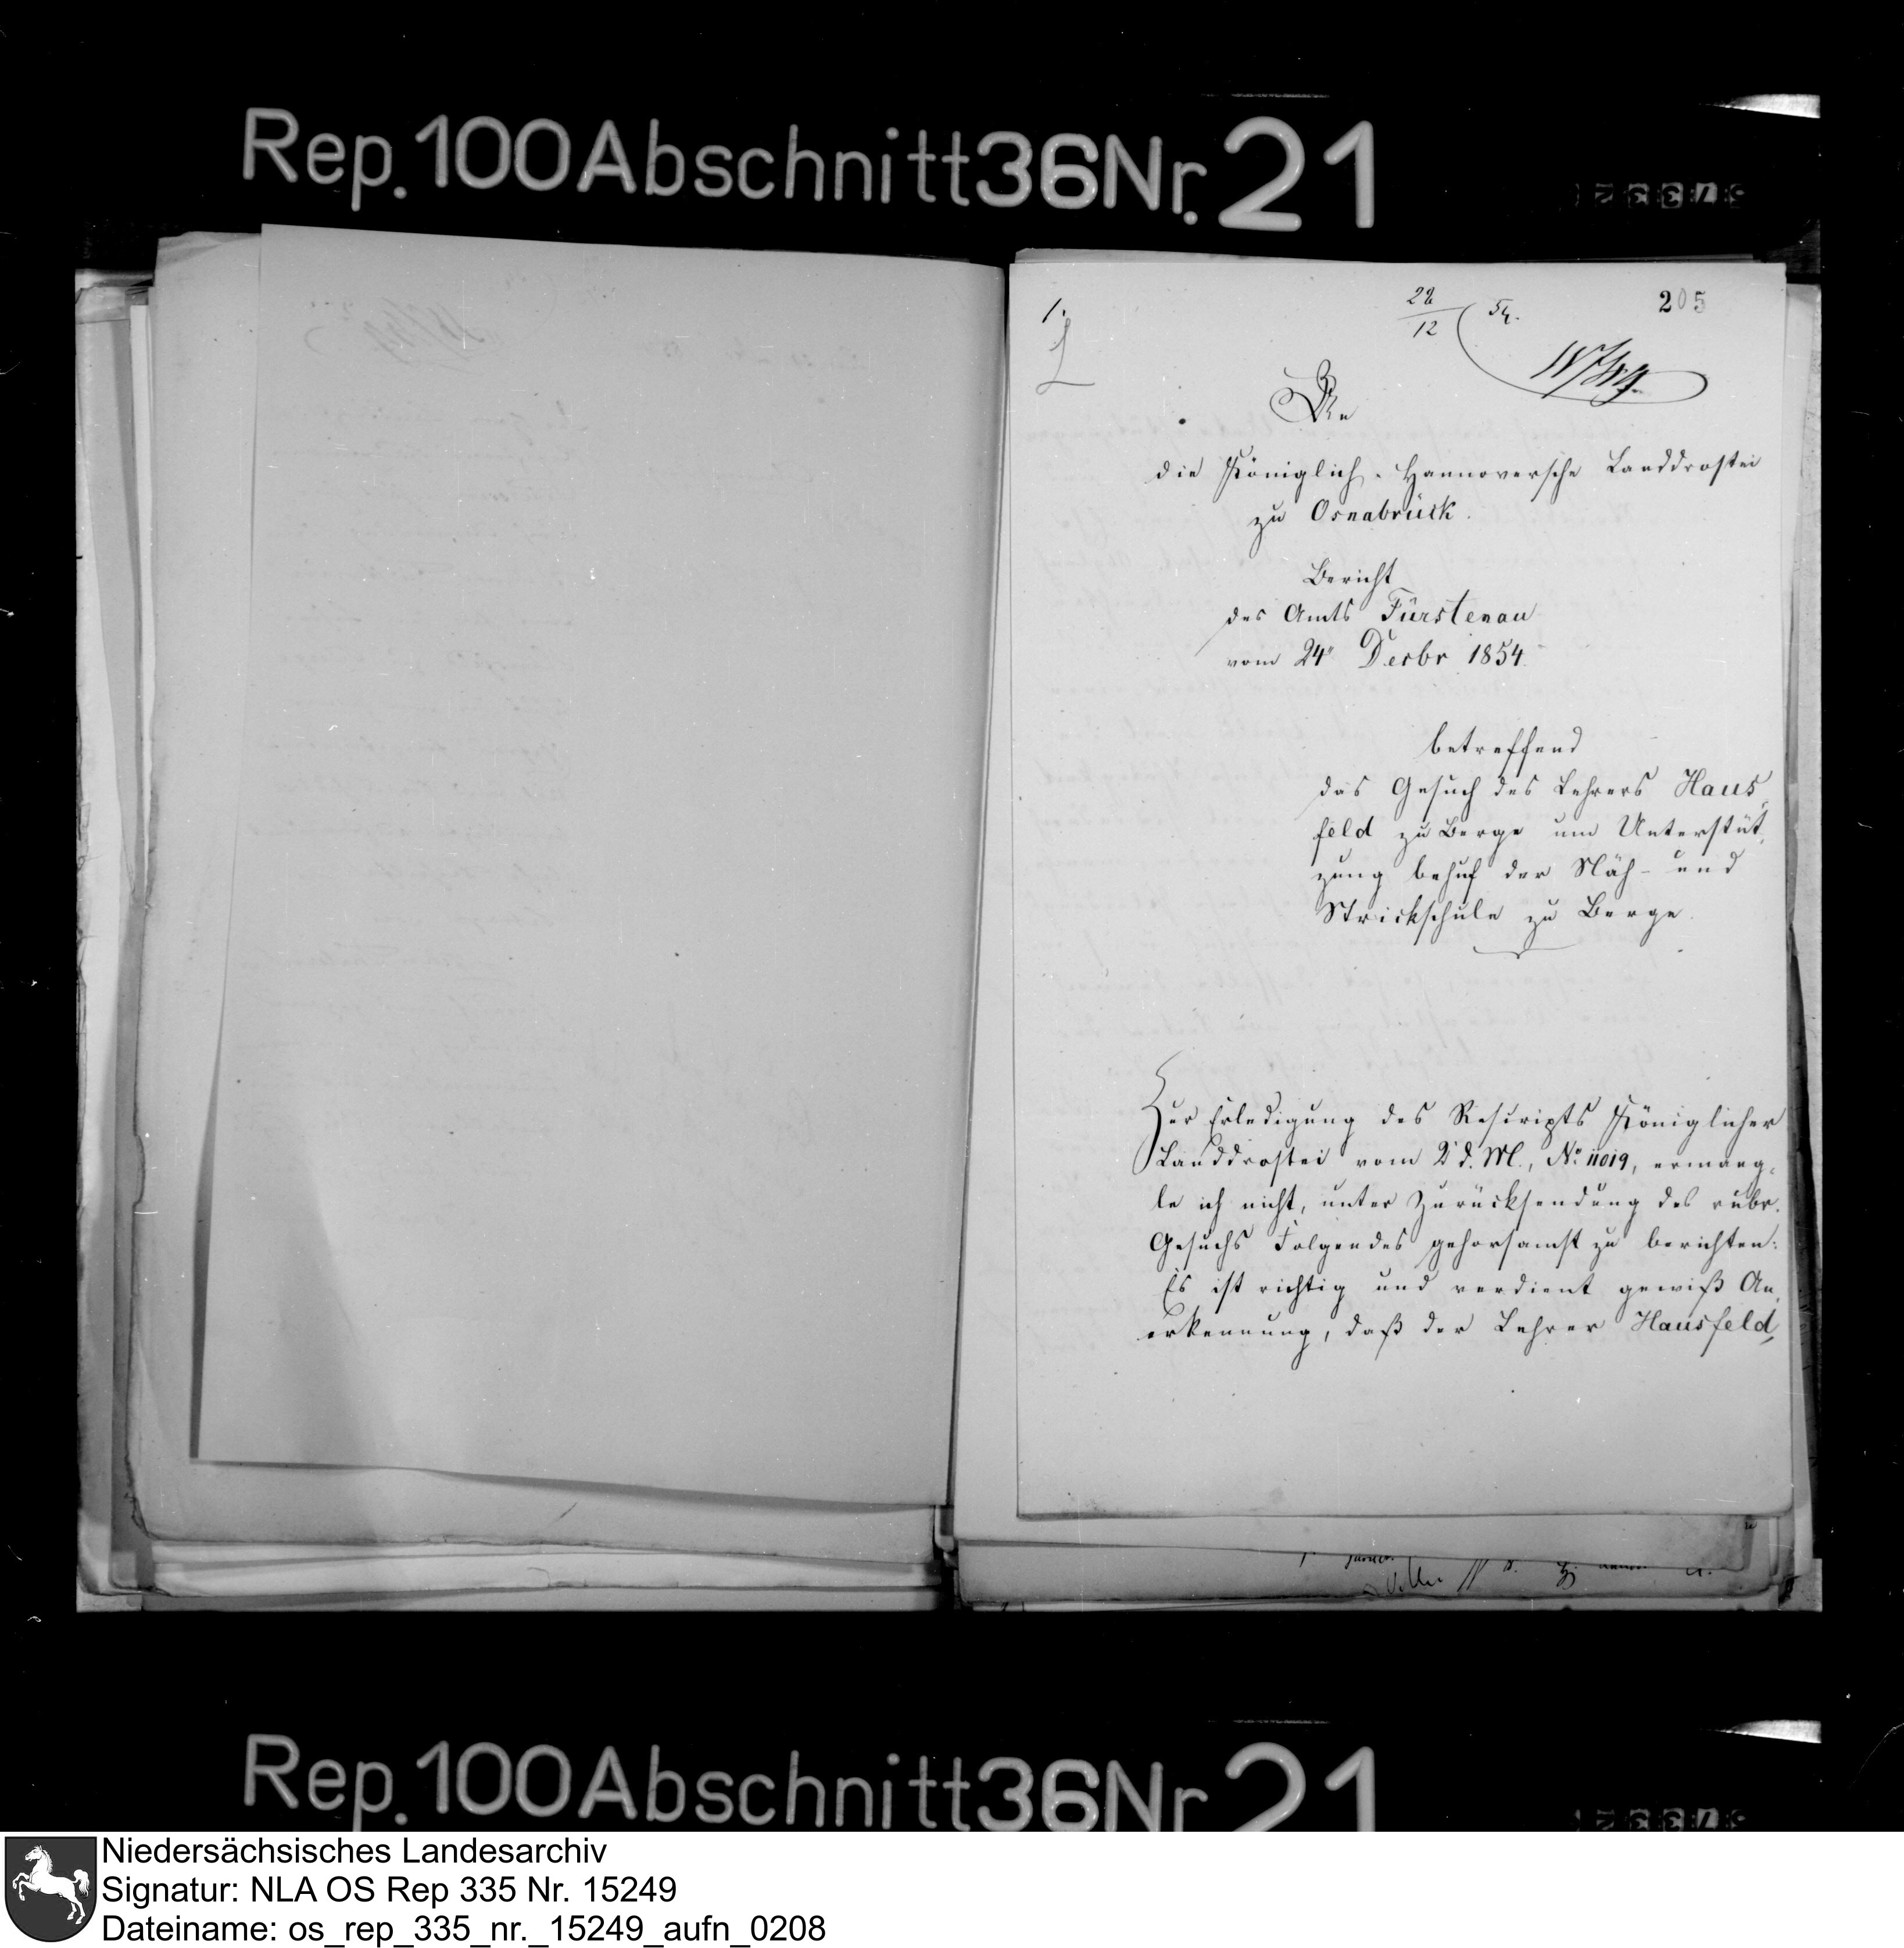 Rep. 100 Abschnitt 36 Nr. 21
1.
28/12 54.
205
An
die Königlich-Hannoversche Landdrostei
zu Osnabrück.
Bericht
des Amts Fürstenau
vom 24" Decbr 1854
betreffend
das Gesuch des Lehrers Haus-
feld zu Berge um Unterstüt-
zung behuf der Näh- und
Strickschule zu Berge.
Zur Erledigung des Rescripts Königlicher
Landdrostei vom 2 d. M., No. 11019, ermang-
le ich nicht, unter Zurücksendung des rubr.
Gesuchs Folgendes gehorsamst zu berichten:
Es ist richtig und verdient gewiß An-
erkennung, daß der Lehrer Hausfeld,
Rep. 100 Abschnitt 36 Nr 21
Niedersächsisches Landesarchiv
Signatur: NLA OS Rep 335 Nr. 15249
Dateiname: os_rep_335_nr._15249_aufn_0208